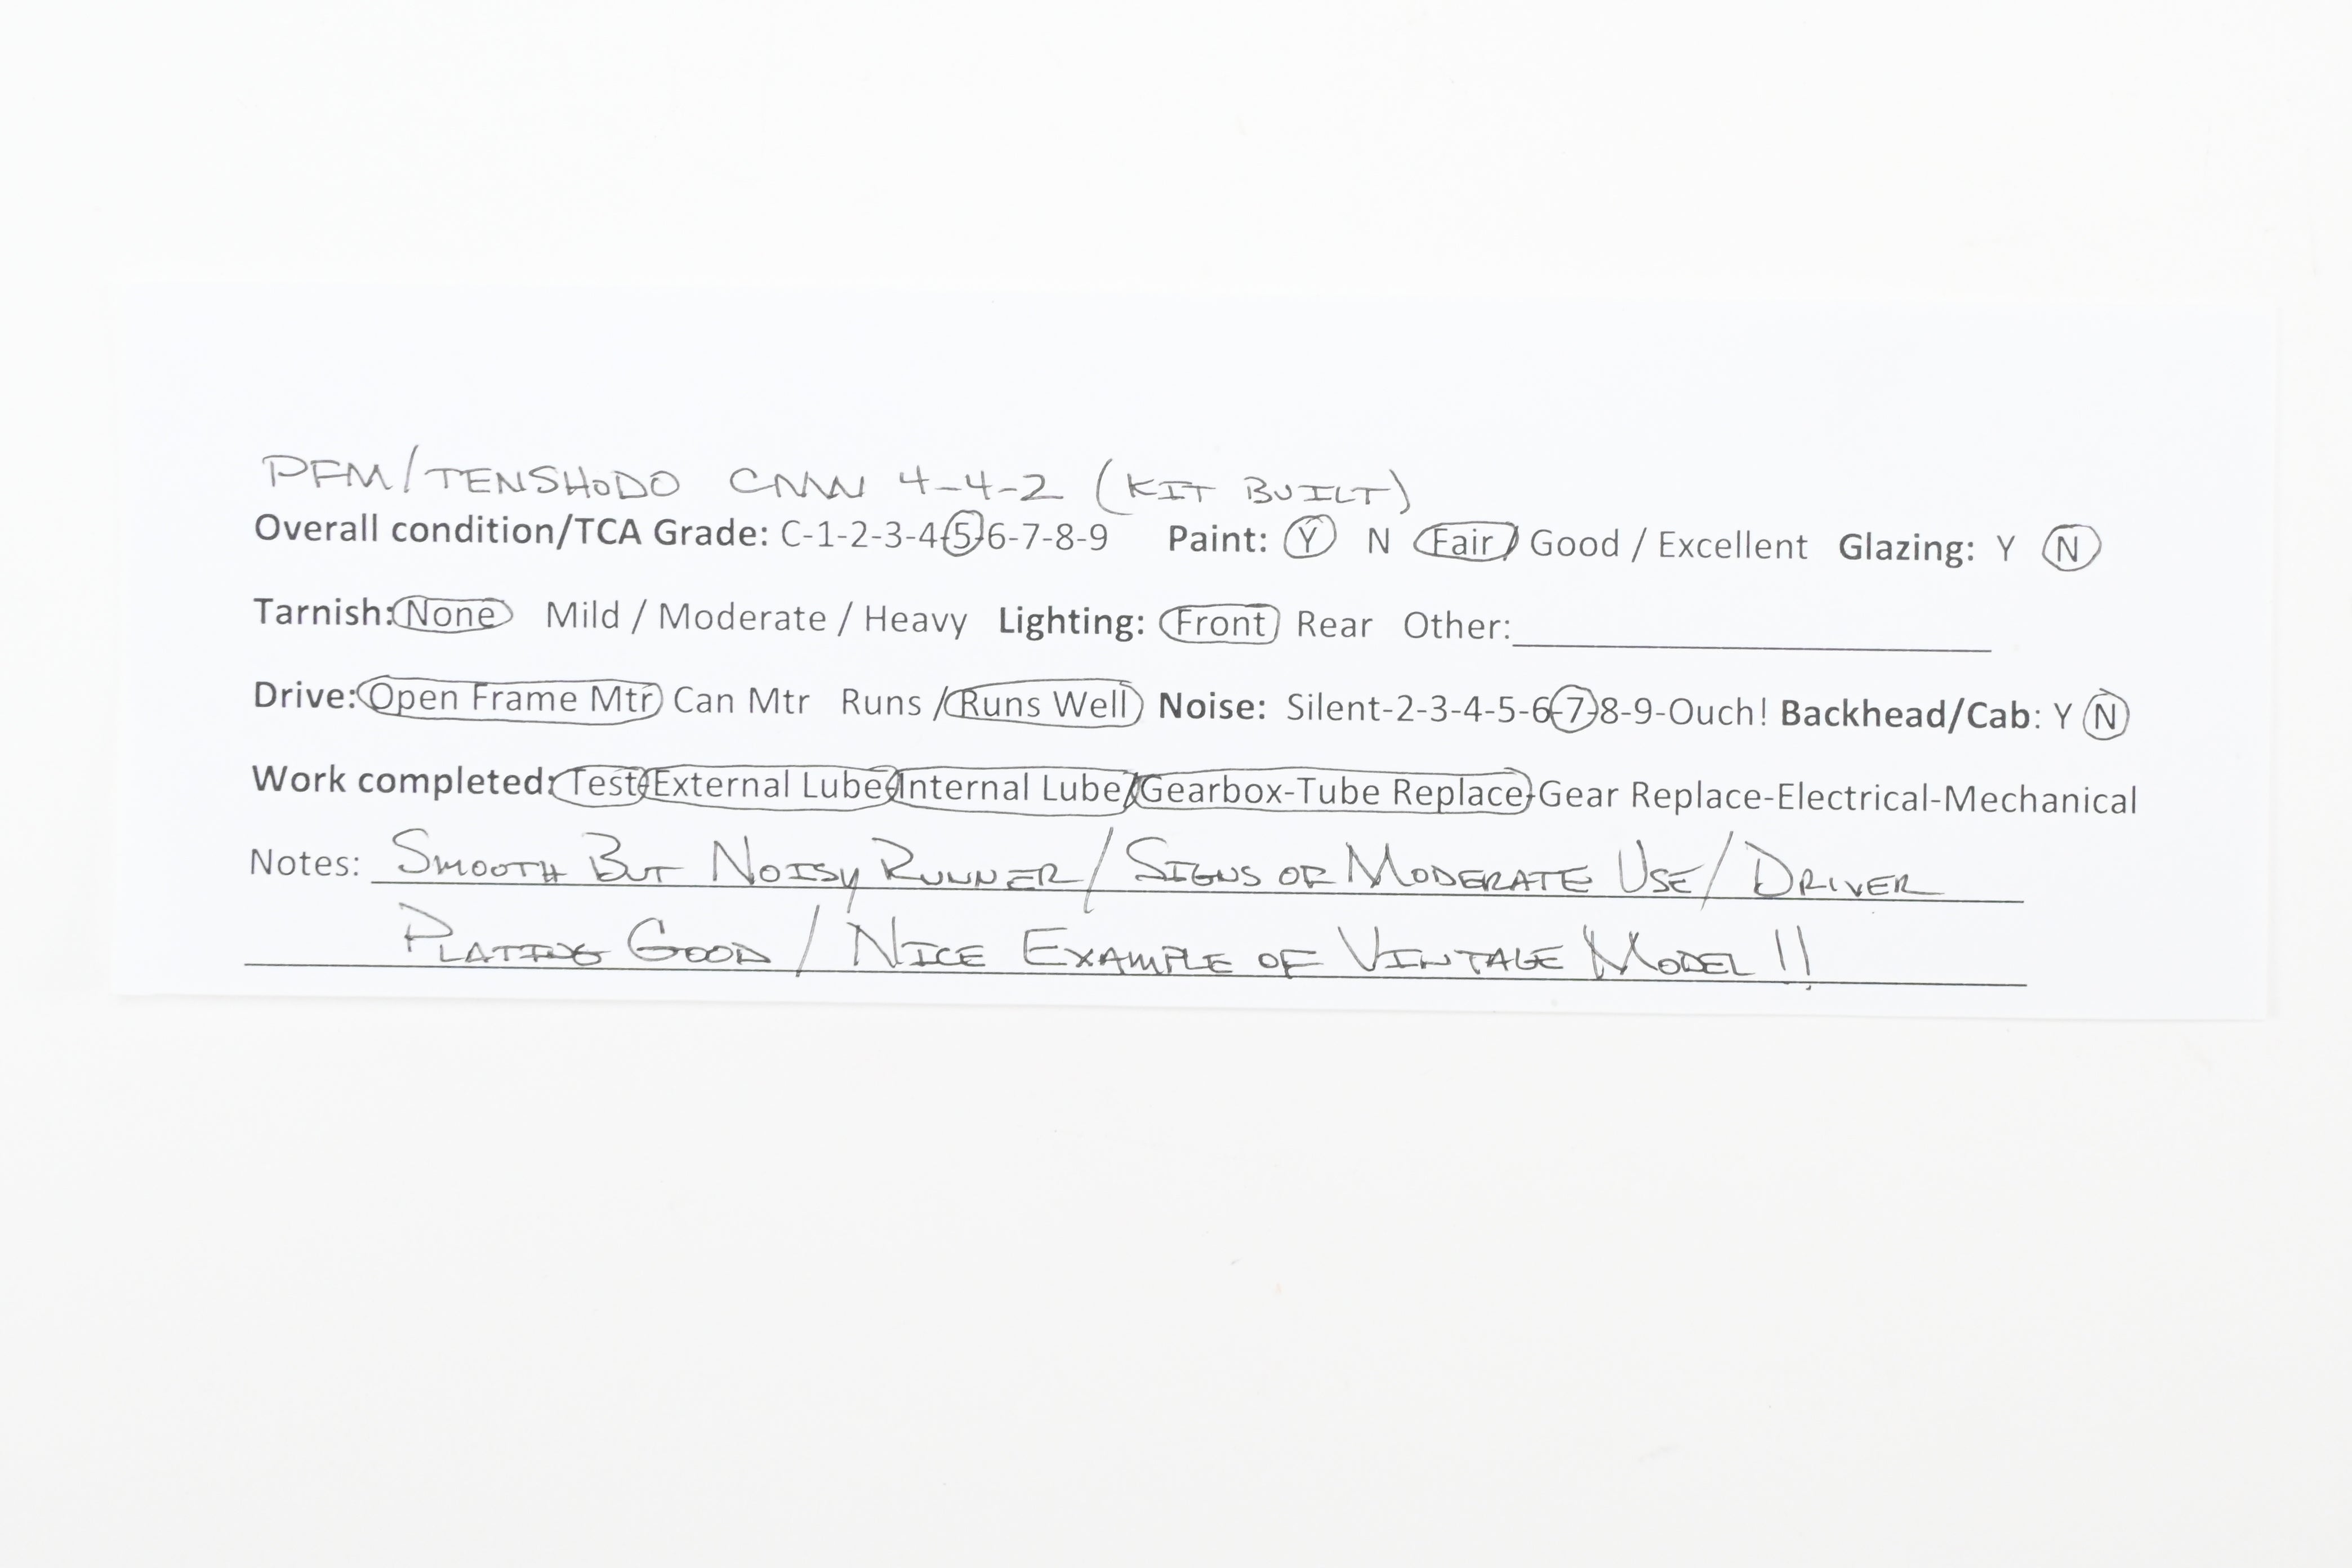 PFM/TENSHODO CNW 4-4-2 (KIT BUILT)
Overall condition/TCA Grade: C-1-2-3-4-5-6-7-8-9 Paint: Y N Fair / Good / Excellent Glazing: Y N
Tarnish: None Mild / Moderate / Heavy Lighting: Front Rear Other:
Drive: Open Frame Mtr Can Mtr Runs / Runs Well Noise: Silent-2-3-4-5-6-7-8-9-Ouch! Backhead/Cab: Y N
Work completed: Test-External Lube-Internal Lube/Gearbox-Tube Replace-Gear Replace-Electrical-Mechanical
Notes: SMOOTH BUT NOISY RUNNER / SIGNS OF MODERATE USE / DRIVER
PLATING GOOD / NICE EXAMPLE OF VINTAGE MODEL !!